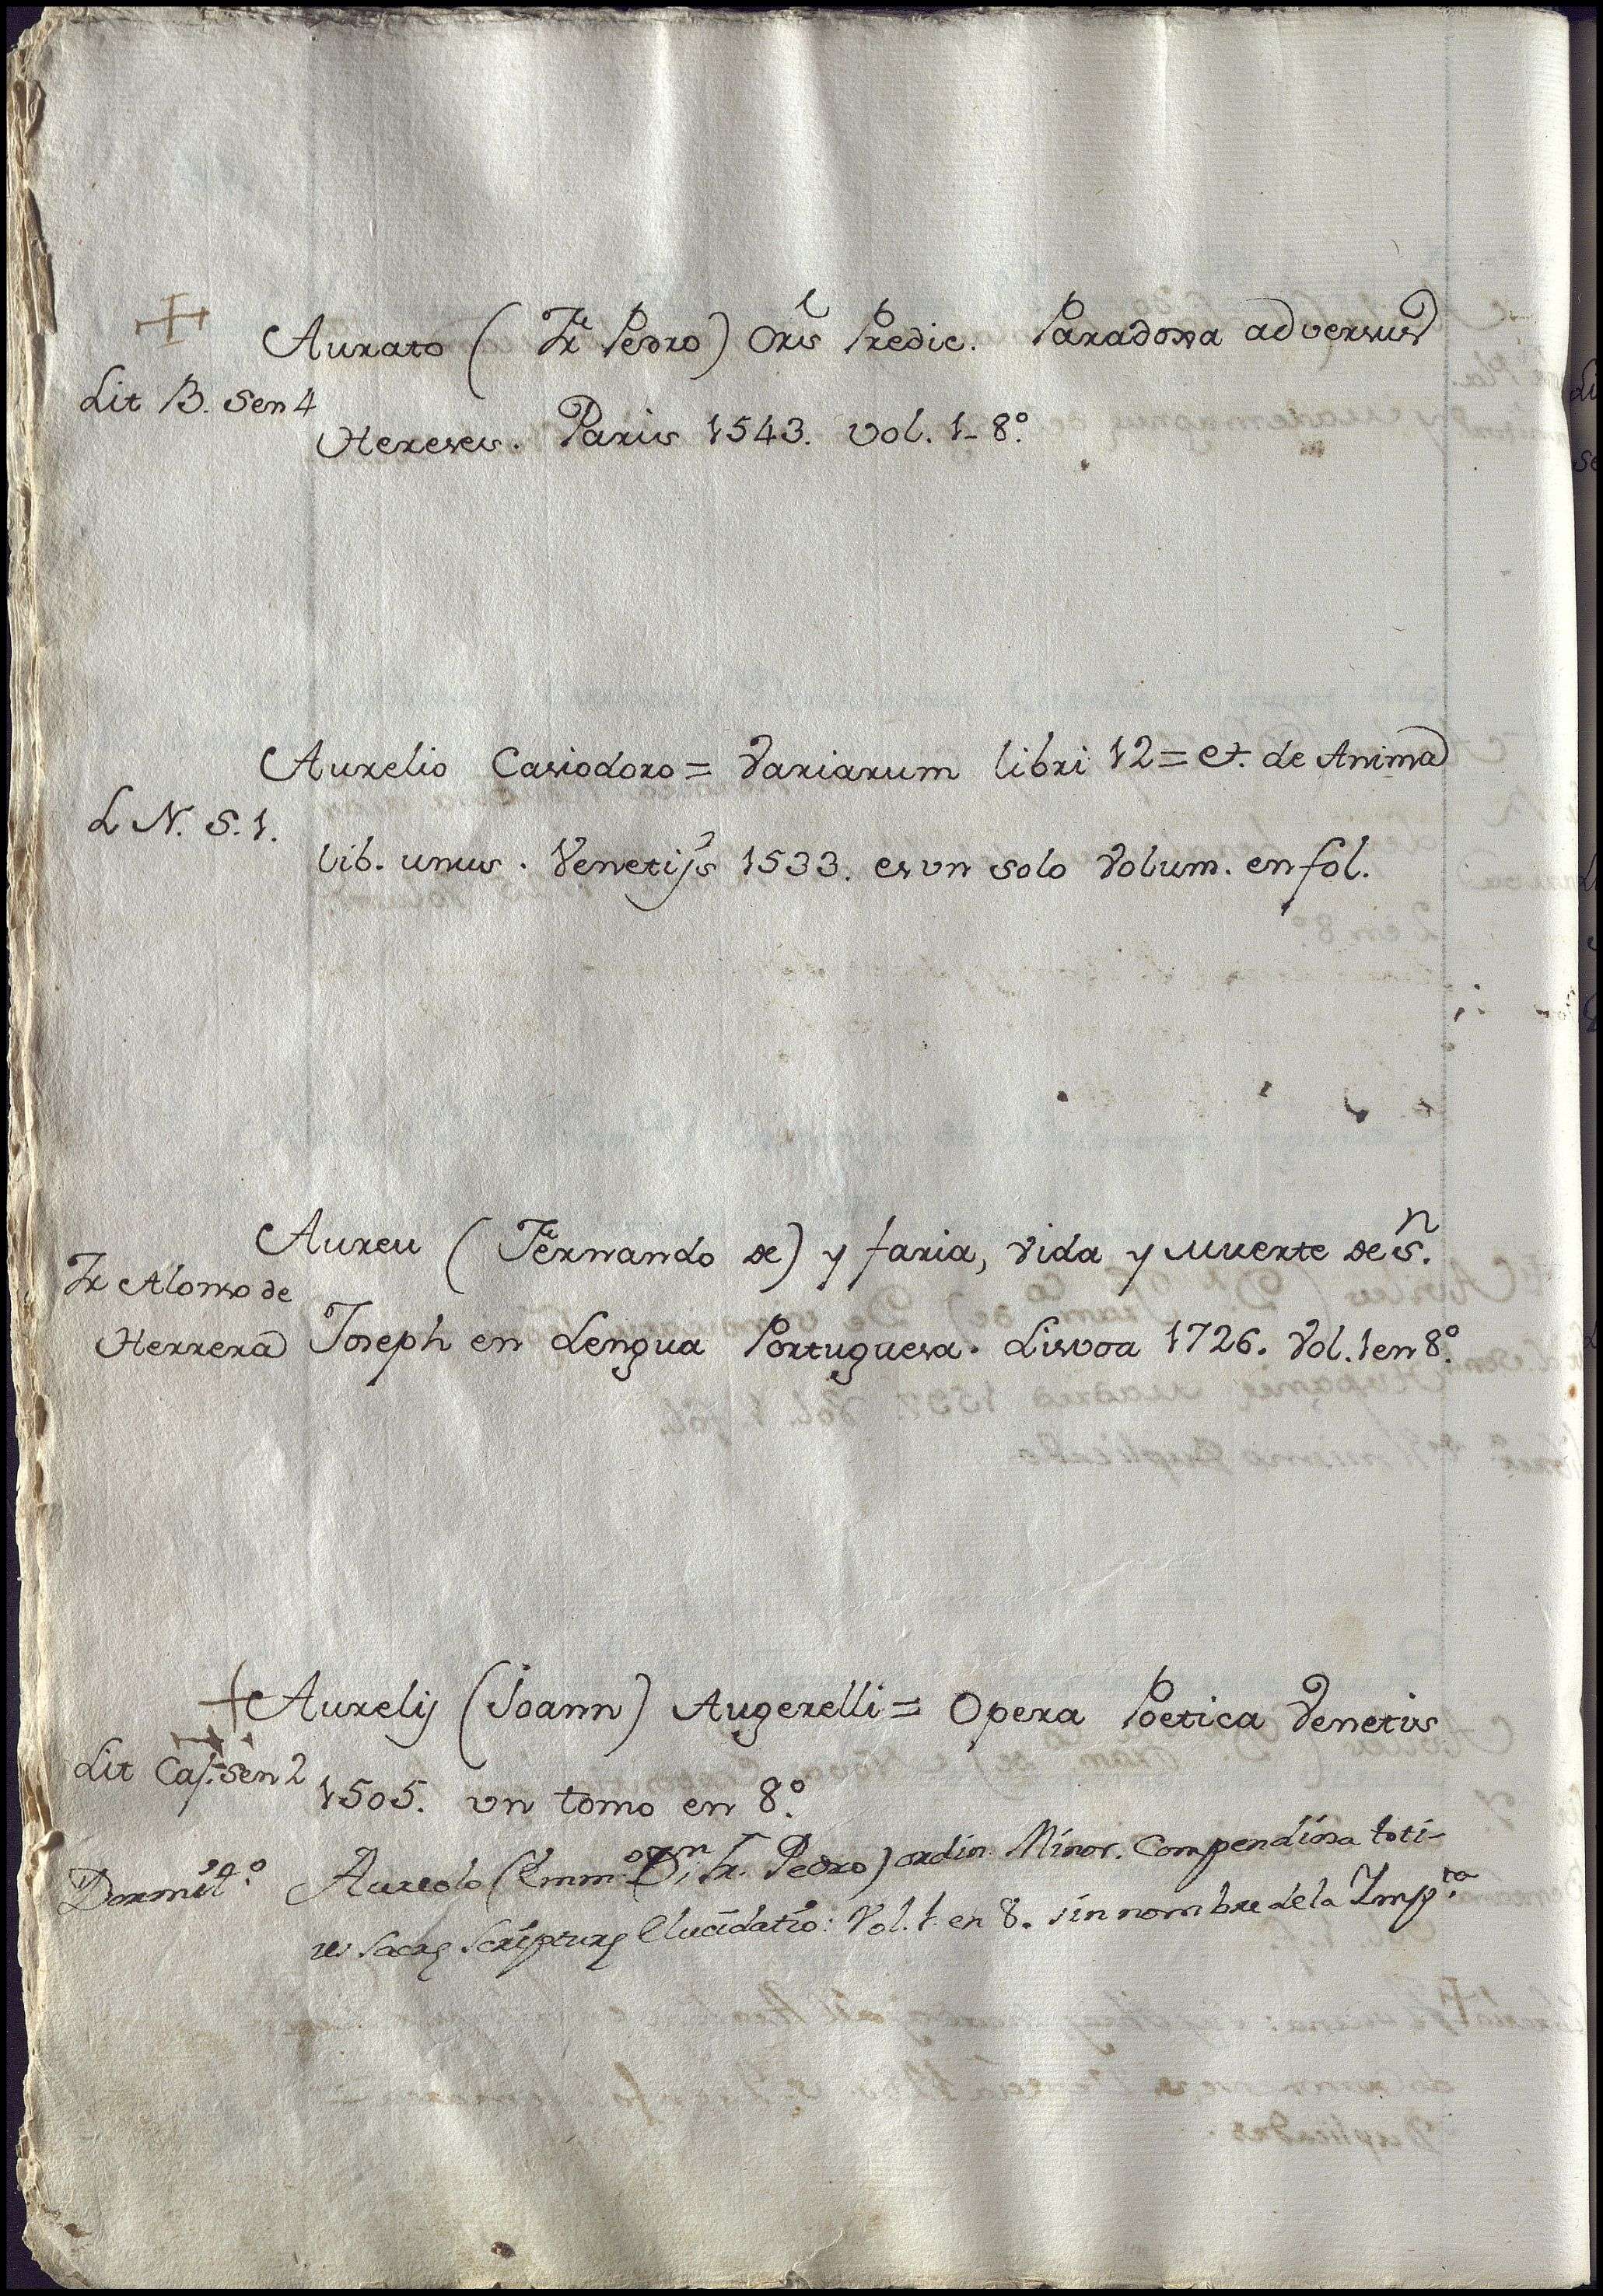 +
Aurato (Fr Pedro) Oris Predic. Paradoxa adversus
Lit B. Sen 4
Hereses. Paris 1543. vol. 1- 8º.
Aurelio Casiodoro = Variarum libri 12 = et. de Anima
L N. S. 1.
lib. unus. Venetijs 1533. es vn solo Volum. en fol.
Aureu (Fernando de) y faria, vida y muerte de Sn.
Fr Alonso de
Herrera
Joseph en Lengua Portuguesa. Lisvoa 1726. Vol. 1 en 8º.
+ Aurelij (Joann) Augerelli = Opera Poetica Venetiis
Lit Caj. Sen 2
1505. vn tomo en 8º.
Dormitº.
Aureolo (Emmº Fr. Pedro) ordin. Minor. Compendiosa toti-
us Sacrę Scripturę Elucidatio: Vol. 1. en 8. sin nombre de la Impta.